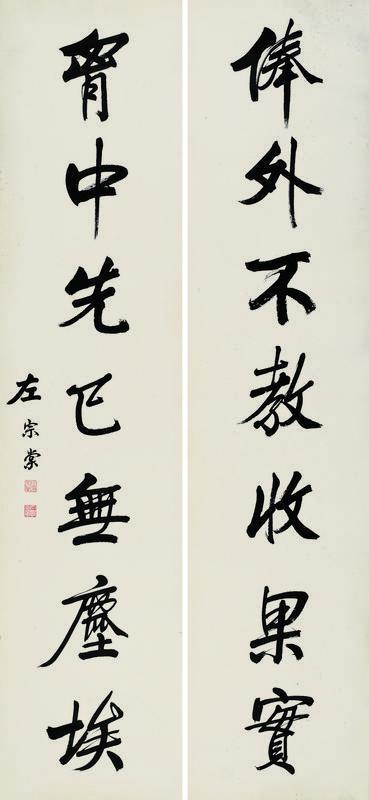 俸外不教收果實
胷中先已無塵埃
左宗棠